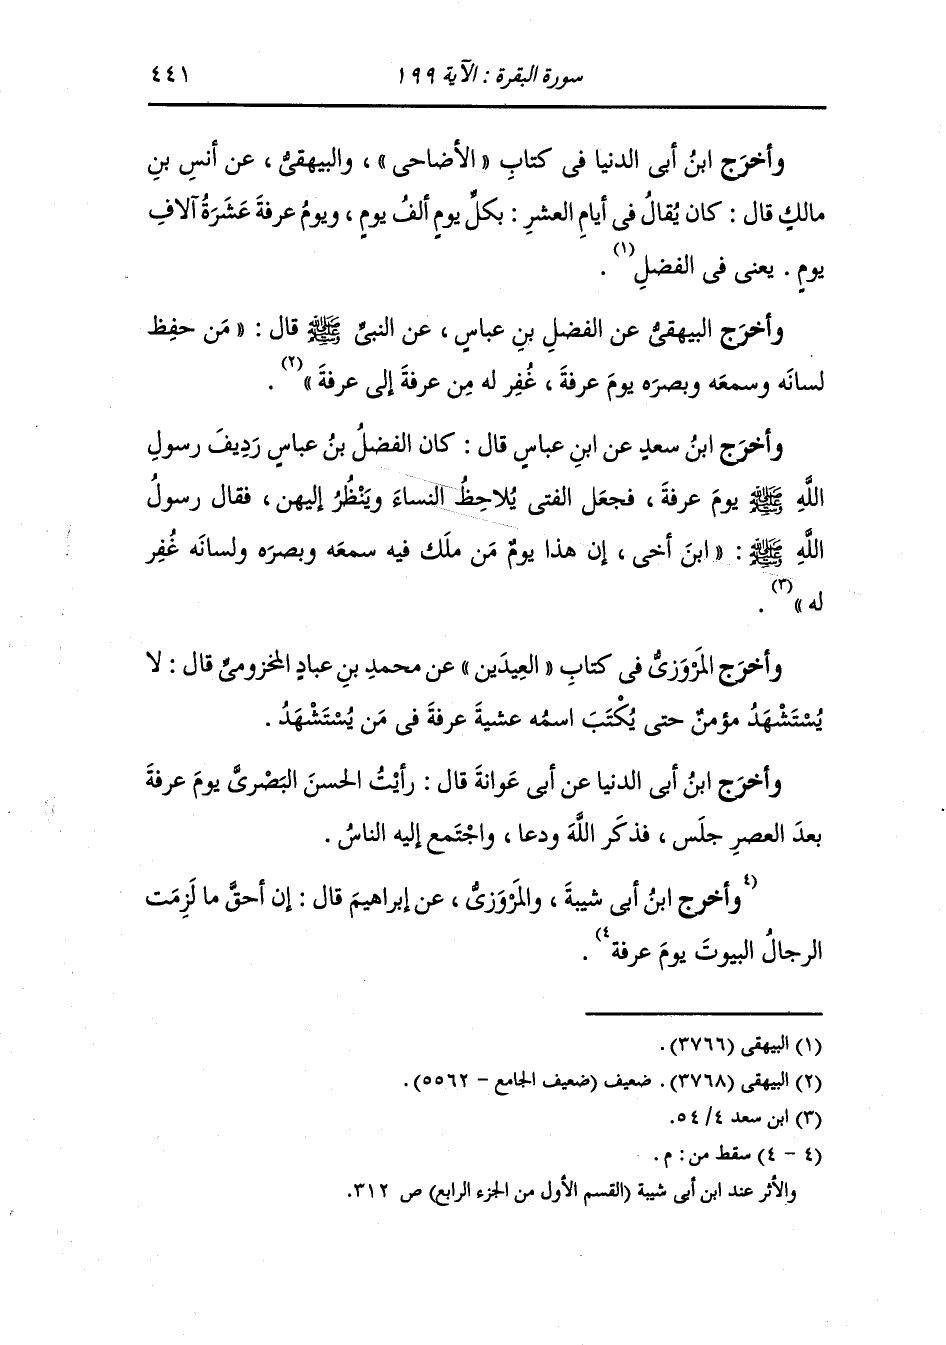 سورة البقرة : الآية ١٩٩ ٤٤١
وأخرَج ابنُ أبى الدنيا فى كتابِ « الأضاحى » ، والبيهقىُّ ، عن أنسِ بنِ
مالكٍ قال : كان يُقالُ فى أيامِ العشرِ : بكلِّ يومٍ ألفُ يومٍ ، ويومُ عرفةَ عَشَرَةُ آلافِ
يومٍ . يعنى فى الفضلِ(١) .
وأخرَج البيهقىُّ عن الفضلِ بنِ عباسٍ ، عن النبىِّ ﷺ قال : « مَن حفِظ
لسانَه وسمعَه وبصرَه يومَ عرفةَ ، غُفِر له مِن عرفةَ إلى عرفةَ »(٢) .
وأخرَج ابنُ سعدٍ عن ابنِ عباسٍ قال : كان الفضلُ بنُ عباسٍ رَدِيفَ رسولِ
اللَّهِ ﷺ يومَ عرفةَ ، فجعَل الفتى يُلاحِظُ النساءَ ويَنْظُرُ إليهن ، فقال رسولُ
اللَّهِ ﷺ : « ابنَ أخى ، إن هذا يومٌ مَن ملَك فيه سمعَه وبصرَه ولسانَه غُفِر
له »(٣) .
وأخرَج المَرْوَزىُّ فى كتابِ « العِيدَين » عن محمدِ بنِ عبادٍ المخزومىِّ قال : لا
يُسْتَشْهَدُ مؤمنٌ حتى يُكْتَبَ اسمُه عشيةَ عرفةَ فى مَن يُسْتَشْهَدُ .
وأخرَج ابنُ أبى الدنيا عن أبى عَوانةَ قال : رأيْتُ الحسنَ البَصْرىَّ يومَ عرفةَ
بعدَ العصرِ جلَس ، فذكَر اللَّهَ ودعا ، واجْتَمع إليه الناسُ .
(٤وأخرج ابنُ أبى شيبةَ ، والمَرْوَزىُّ ، عن إبراهيمَ قال : إن أحقَّ ما لَزِمَت
الرجالُ البيوتَ يومَ عرفة٤) .
(١) البيهقى (٣٧٦٦) .
(٢) البيهقى (٣٧٦٨) . ضعيف (ضعيف الجامع – ٥٥٦٢) .
(٣) ابن سعد ٤/ ٥٤.
(٤ – ٤) سقط من : م .
والأثر عند ابن أبى شيبة (القسم الأول من الجزء الرابع) ص ٣١٢.